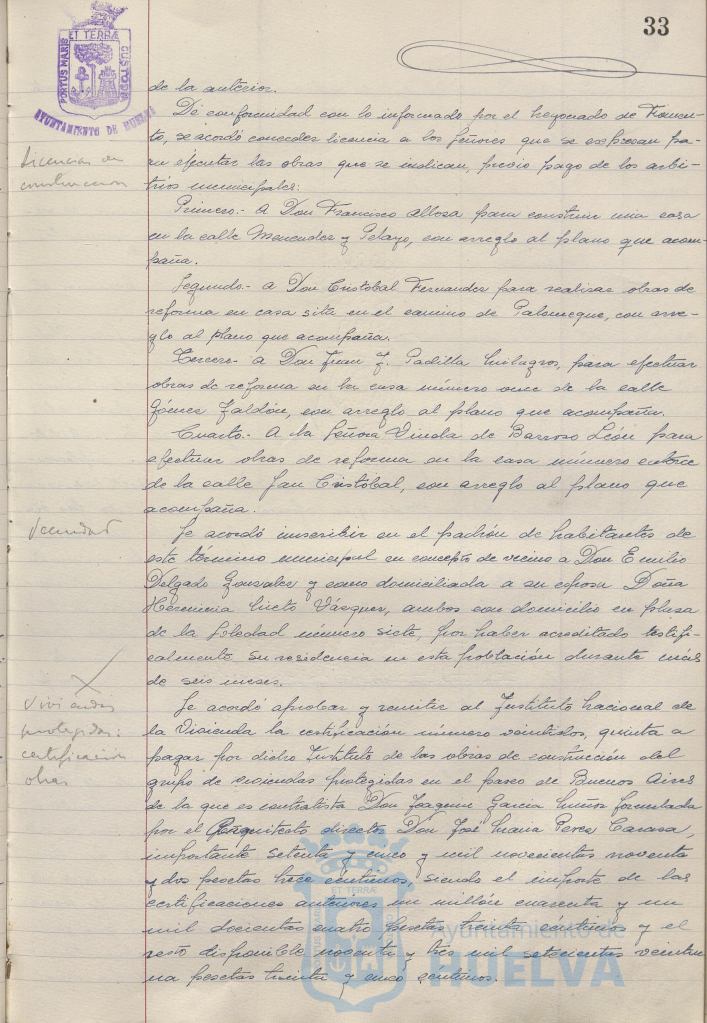 33
PORTUS MARIS
ET TERRÆ
CUSTODIA
AYUNTAMIENTO DE HUELVA
de la anterior.
De conformidad con lo informado por el Negociado de Fomen-
to, se acordó conceder licencia a los Señores que se expresan pa-
ra ejecutar las obras que se indican, previo pago de los arbi-
trios municipales:
Licencias de
construcciones
Primero.- A Don Francisco para construir una casa
en la calle Menendez y Pelayo, con arreglo al plano que acom-
paña.
Segundo.- a Don Cristóbal Fernandez para realizar obras de
reforma en casa sita en el camino de Palomeque, con arre-
glo al plano que acompaña.
Tercero.- a Don Juan J. Padilla Milagros, para efectuar
obras de reforma en la casa número once de la calle
Gómez Jaldón, con arreglo al plano que acompaña.
Cuarto.- A la Señora Viuda de Barroso León para
efectuar obras de reforma en la casa número catorce
de la calle San Cristóbal, con arreglo al plano que
acompaña.
Vecindad
Se acordó inscribir en el padrón de habitantes de
este término municipal en concepto de vecino a Don Emilio
Delgado Gonzalez y como domiciliada a su esposa Doña
Herminia Nieto Vázquez, ambos con domicilio en plaza
de la Soledad número siete, por haber acreditado testifi-
calmente su residencia en esta población durante más
de seis meses.
Viviendas
protegidas:
certificación
obras
Se acordó aprobar y remitir al Instituto Nacional de
la Vivienda la certificación número veintidos, quinta a
pagar por dicho Instituto de las obras de construcción del
grupo de viviendas protegidas en el paseo de Buenos Aires
de la que es contratista Don Joaquin Garcia Muñoz formulada
por el Arquitecto director Don José Maria Perez Carasa,
importante setenta y cinco y mil novecientas noventa
y dos pesetas trece céntimos, siendo el importe de las
certificaciones anteriores un millón cuarenta y un
mil doscientas cuatro pesetas treinta céntimos y el
resto disponible noventa y tres mil setecientas veintiu-
na pesetas treinta y cinco céntimos.
ET TERRÆ
Ayuntamiento de
HUELVA